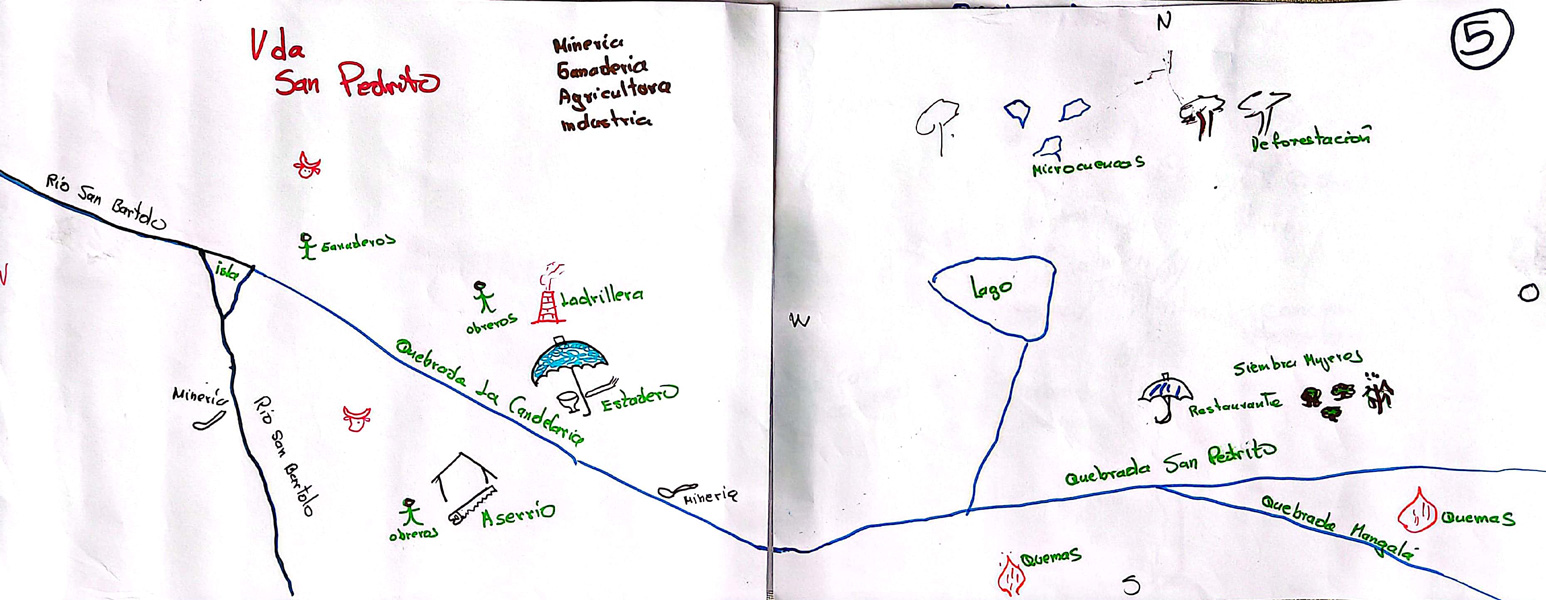 Vda
San Pedrito
Minería
Ganaderia
Agricultura
industria
N
5
Deforestación
Microcuencas
Río San Bartolo
isla
Ganaderos
Ladrillera
obreros
Lago
W
O
Quebrada La Candelaria
Estadero
Minería
Río San Bartolo
Siembra Mujeres
Restaurante
Quebrada San Pedrito
Aserrío
obreros
Minería
Quebrada Mangalá
Quemas
Quemas
S